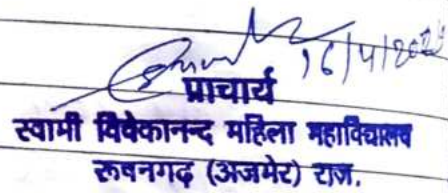 16/4/202
प्राचार्य
स्वामी विवेकानन्द महिला महाविद्यालय
रूपनगढ़ (अजमेर) राज.